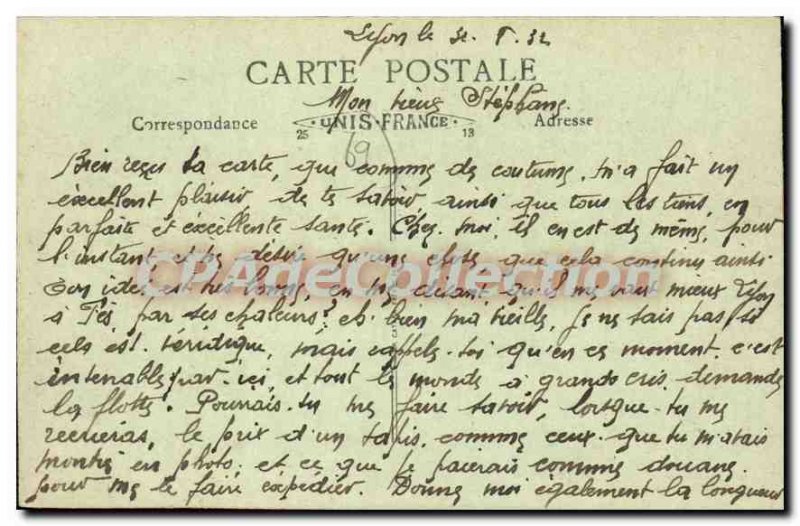 Lyon le
CARTE POSTALE
Mon vieux Stéphane.
Correspondance UNIS-FRANCE Adresse
25 13
69
Bien reçu ta carte, que comme de coutume, m'a fait un
excellent plaisir de te savoir ainsi que tous les tiens, en
parfaite et excellente santé. Chez moi, il en est de même, pour
l'instant et ne désire qu'une chose que cela continue ainsi
Ton idée est très bonne, en me disant qu'il me vaut mieux Lyon
à Fès par ses chaleurs? eh bien ma vieille, je ne sais pas, si
cela est véridique, mais rappelle-toi qu'en ce moment c'est
intenable par ici, et tout le monde à grands cris, demande
la flotte. Pourrais-tu me faire savoir, lorsque tu me
recriras, le prix d'un tapis, comme ceux que tu m'avais
montré en photo, et ce que je paierais comme douane.
pour me le faire expédier. Donne moi également la longueur
CPAdeCollection